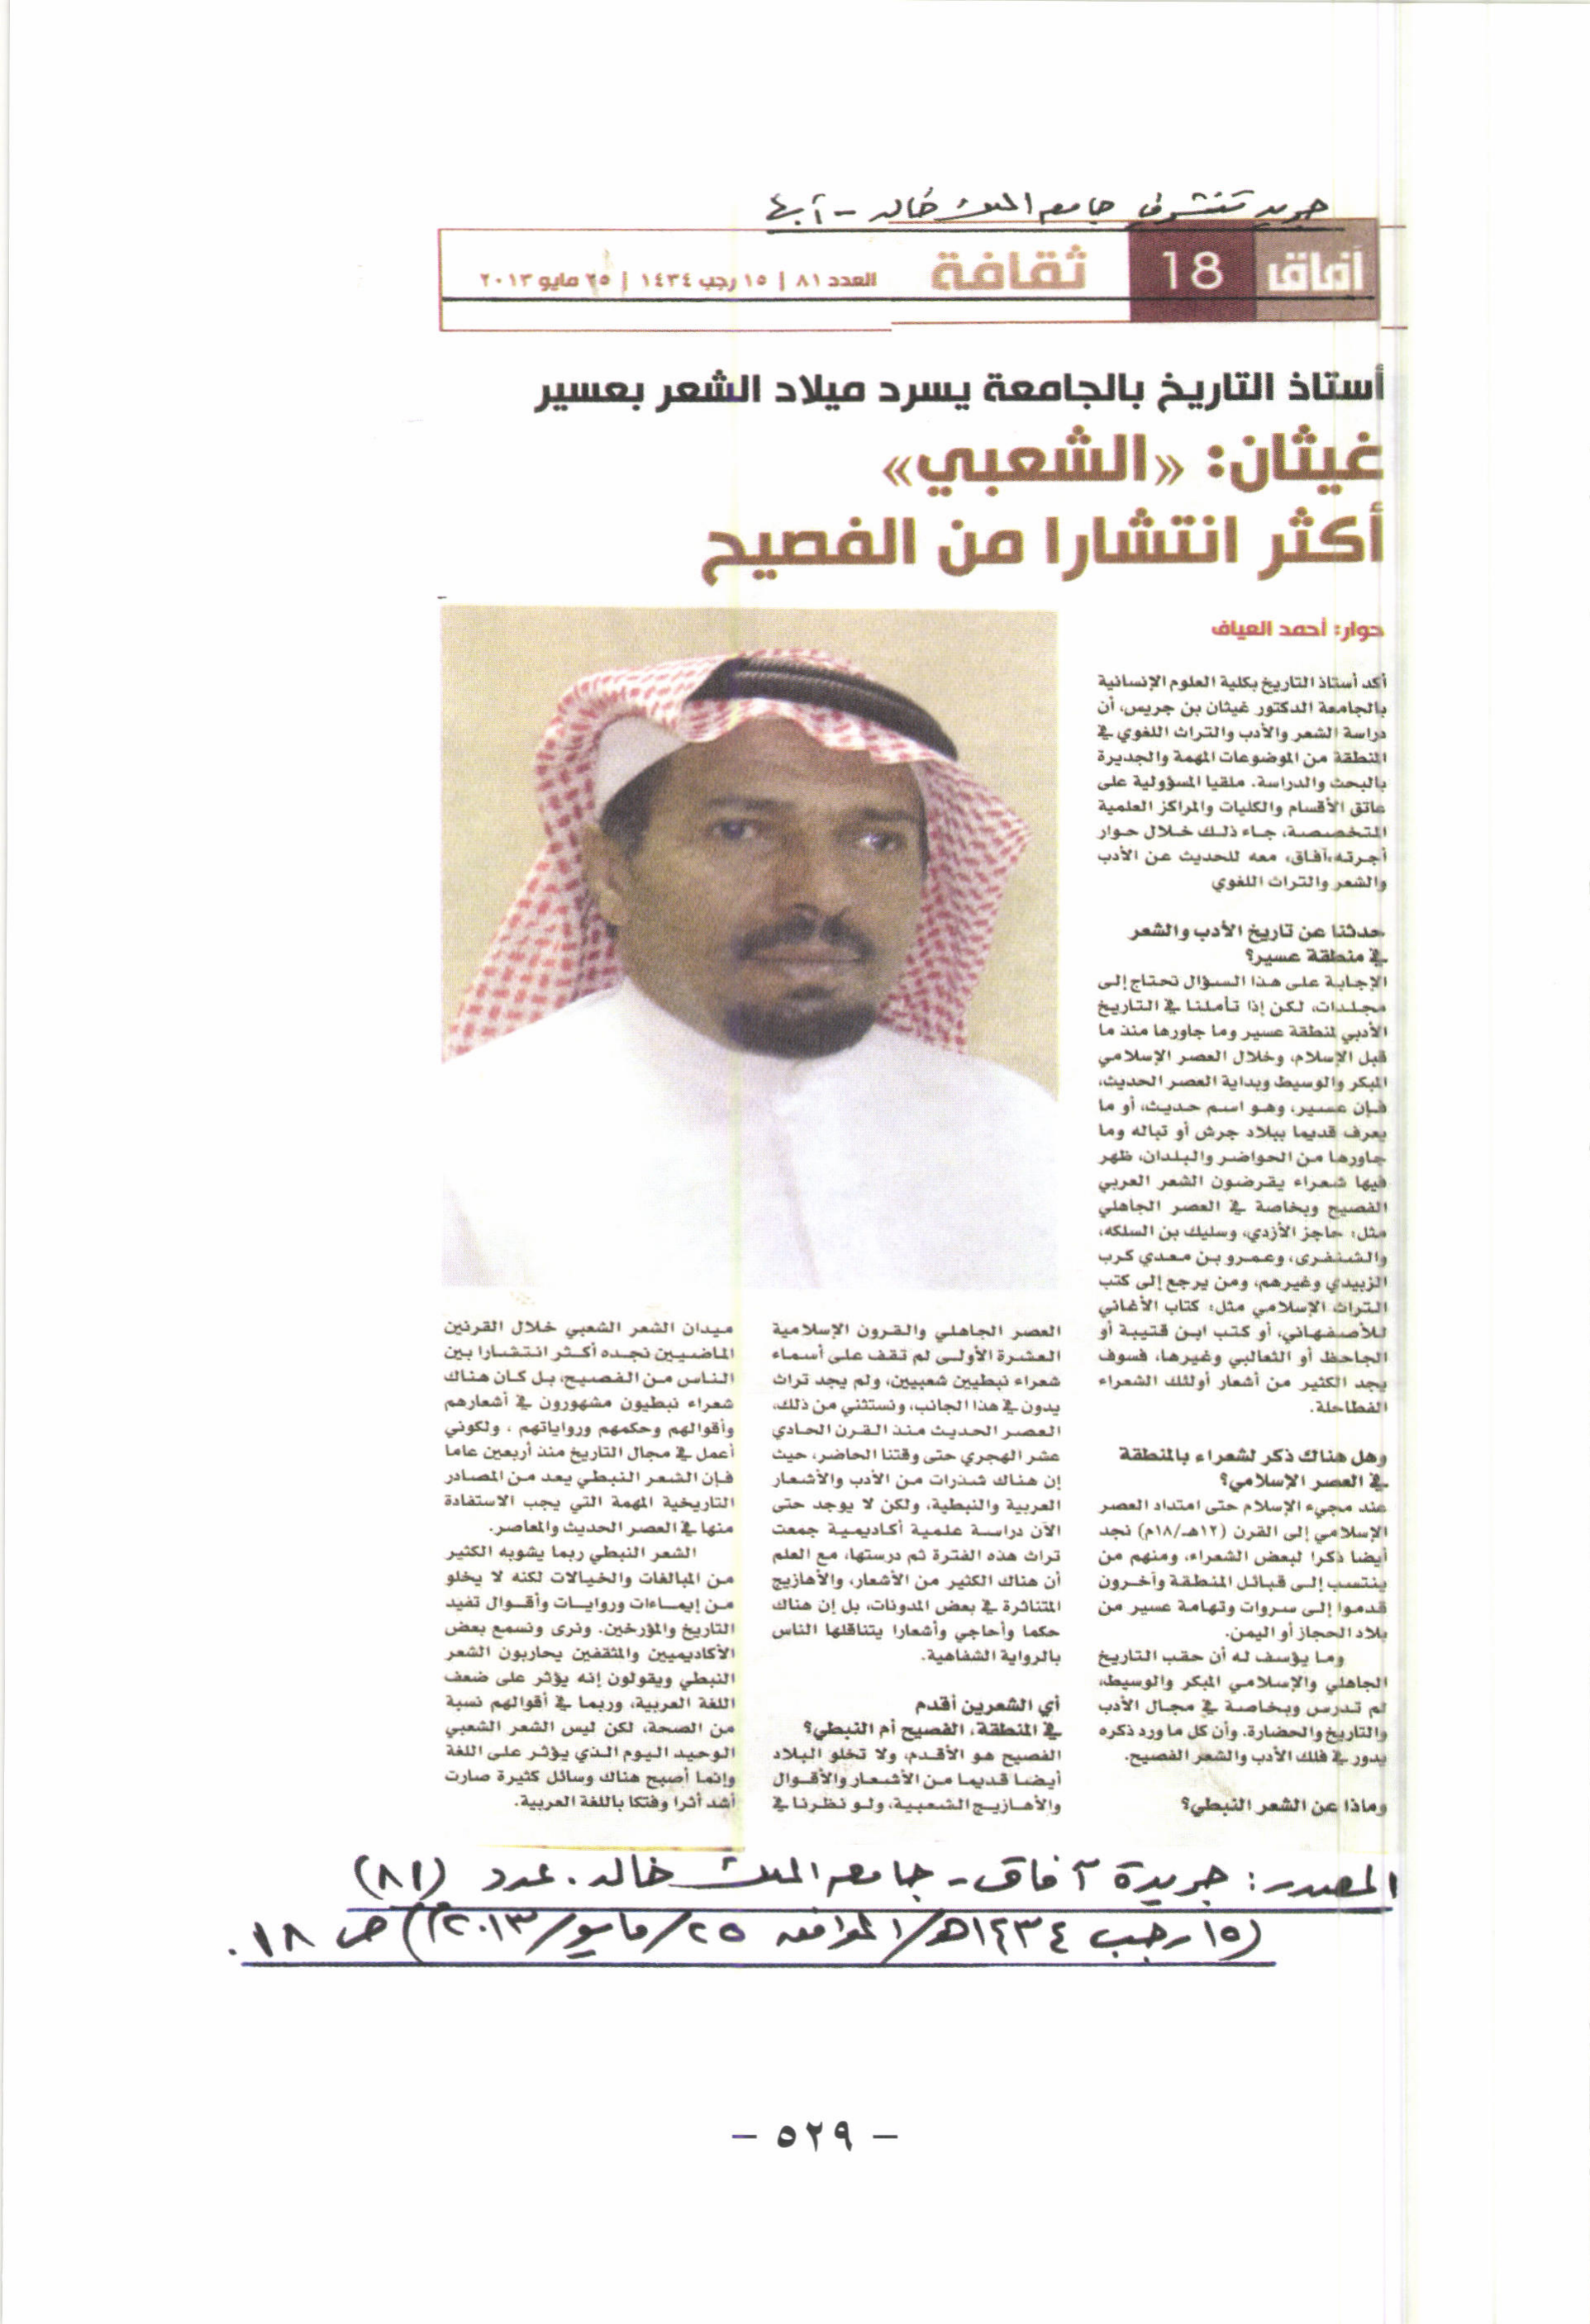 جريدة تشرف جامعة الملك خالد - أبها
آفاق
18
ثقافة
العدد ٨١ | ١٥ رجب ١٤٣٤ | ٢٥ مايو ٢٠١٣
أستاذ التاريخ بالجامعة يسرد ميلاد الشعر بعسير
غيثان: «الشعبي»
أكثر انتشارا من الفصيح
حوار: أحمد العياف
أكد أستاذ التاريخ بكلية العلوم الإنسانية
بالجامعة الدكتور غيثان بن جريس، أن
دراسة الشعر والأدب والتراث اللغوي في
المنطقة من الموضوعات المهمة والجديرة
بالبحث والدراسة. ملقيا المسؤولية على
عاتق الأقسام والكليات والمراكز العلمية
المتخصصة، جاء ذلك خلال حوار
أجرته «آفاق» معه للحديث عن الأدب
والشعر والتراث اللغوي
حدثنا عن تاريخ الأدب والشعر
في منطقة عسير؟
الإجابة على هذا السؤال تحتاج إلى
مجلدات، لكن إذا تأملنا في التاريخ
الأدبي لمنطقة عسير وما جاورها منذ ما
قبل الإسلام، وخلال العصر الإسلامي
المبكر والوسيط وبداية العصر الحديث،
فإن عسير، وهو اسم حديث، أو ما
يعرف قديما ببلاد جرش أو تباله وما
جاورها من الحواضر والبلدان، ظهر
فيها شعراء يقرضون الشعر العربي
الفصيح وبخاصة في العصر الجاهلي
مثل: حاجز الأزدي، وسليك بن السلكه،
والشنفرى، وعمرو بن معدي كرب
الزبيدي وغيرهم، ومن يرجع إلى كتب
التراث الإسلامي مثل: كتاب الأغاني
للأصفهاني، أو كتب ابن قتيبة أو
الجاحظ أو الثعالبي وغيرها، فسوف
يجد الكثير من أشعار أولئك الشعراء
الفطاحلة.
وهل هناك ذكر لشعراء بالمنطقة
في العصر الإسلامي؟
عند مجيء الإسلام حتى امتداد العصر
الإسلامي إلى القرن (١٢هـ/١٨م) نجد
أيضا ذكرا لبعض الشعراء، ومنهم من
ينتسب إلى قبائل المنطقة وآخرون
قدموا إلى سروات وتهامة عسير من
بلاد الحجاز أو اليمن.
وما يؤسف له أن حقب التاريخ
الجاهلي والإسلامي المبكر والوسيط،
لم تدرس وبخاصة في مجال الأدب
والتاريخ والحضارة. وأن كل ما ورد ذكره
يدور في فلك الأدب والشعر الفصيح.
وماذا عن الشعر النبطي؟
العصر الجاهلي والقرون الإسلامية
العشرة الأولى لم تقف على أسماء
شعراء نبطيين شعبيين، ولم يجد تراث
يدون في هذا الجانب، ونستثني من ذلك،
العصر الحديث منذ القرن الحادي
عشر الهجري حتى وقتنا الحاضر، حيث
إن هناك شذرات من الأدب والأشعار
العربية والنبطية، ولكن لا يوجد حتى
الآن دراسة علمية أكاديمية جمعت
تراث هذه الفترة ثم درستها، مع العلم
أن هناك الكثير من الأشعار، والأهازيج
المتناثرة في بعض المدونات، بل إن هناك
حكما وأحاجي وأشعارا يتناقلها الناس
بالرواية الشفاهية.
أي الشعرين أقدم
في المنطقة، الفصيح أم النبطي؟
الفصيح هو الأقدم، ولا تخلو البلاد
أيضا قديما من الأشعار والأقوال
والأهازيج الشعبية، ولو نظرنا في
ميدان الشعر الشعبي خلال القرنين
الماضيين نجده أكثر انتشارا بين
الناس من الفصيح، بل كان هناك
شعراء نبطيون مشهورون في أشعارهم
وأقوالهم وحكمهم ورواياتهم ، ولكوني
أعمل في مجال التاريخ منذ أربعين عاما
فإن الشعر النبطي يعد من المصادر
التاريخية المهمة التي يجب الاستفادة
منها في العصر الحديث والمعاصر.
الشعر النبطي ربما يشوبه الكثير
من المبالغات والخيالات لكنه لا يخلو
من إيماءات وروايات وأقوال تفيد
التاريخ والمؤرخين. ونرى ونسمع بعض
الأكاديميين والمثقفين يحاربون الشعر
النبطي ويقولون إنه يؤثر على ضعف
اللغة العربية، وربما في أقوالهم نسبة
من الصحة، لكن ليس الشعر الشعبي
الوحيد اليوم الذي يؤثر على اللغة
وإنما أصبح هناك وسائل كثيرة صارت
أشد أثرا وفتكا باللغة العربية.
المصدر: جريدة آفاق - جامعة الملك خالد. عدد (٨١)
(١٥ رجب ١٤٣٤هـ/الموافق ٢٥/مايو/٢٠١٣م) ص ١٨.
- ٥٢٩ -